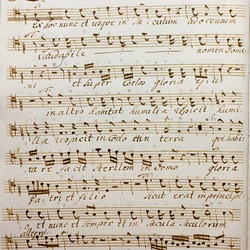 ex hoc nunc et usque in sæculum adorcenum
laudabile nomen Domi
ni et super coelos gloria ejus
in altis habitat humilia respicit humi
lia respicit in Coelo et in terra qui habi
tare facit sterilem in domo gloria
Patri et filio sicut erat in principio
et nunc et semper et in sæcula sæculorum
allegro